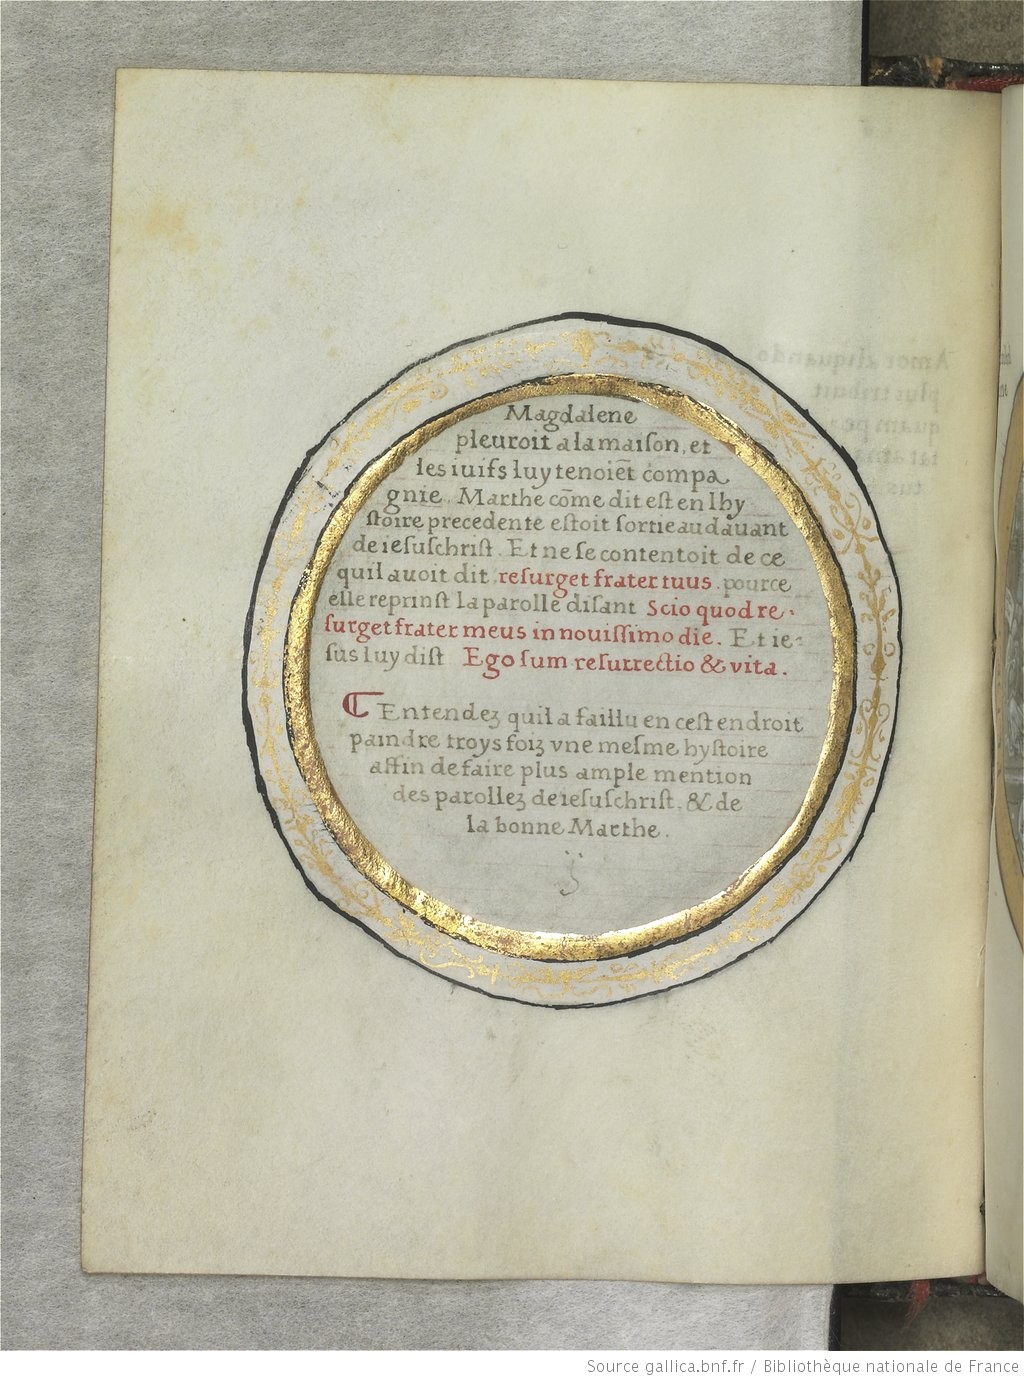 Magdalene
pleuroit a la maiſon, et
les iuifs luy tenoiēt compa
gnie. Marthe cōme dit eſt en lhy
ſtoire precedente eſtoit ſortie audauant
de ieſuſchriſt. Et ne ſe contentoit de ce
quil auoit dit reſurget frater tuus. pource
elle reprinſt la parolle diſant Scio quod re-
ſurget frater meus in nouiſſimo die. Et ie-
ſus luy diſt Ego ſum reſurrectio & vita.
Entendez quil a faillu en ceſt endroit
paindre troys foiz vne meſme hyſtoire
affin de faire plus ample mention
des parollez de ieſuſchriſt. & de
la bonne Marthe.
Amor aliquando
plus tribuit
Source gallica.bnf.fr / Bibliothèque nationale de France